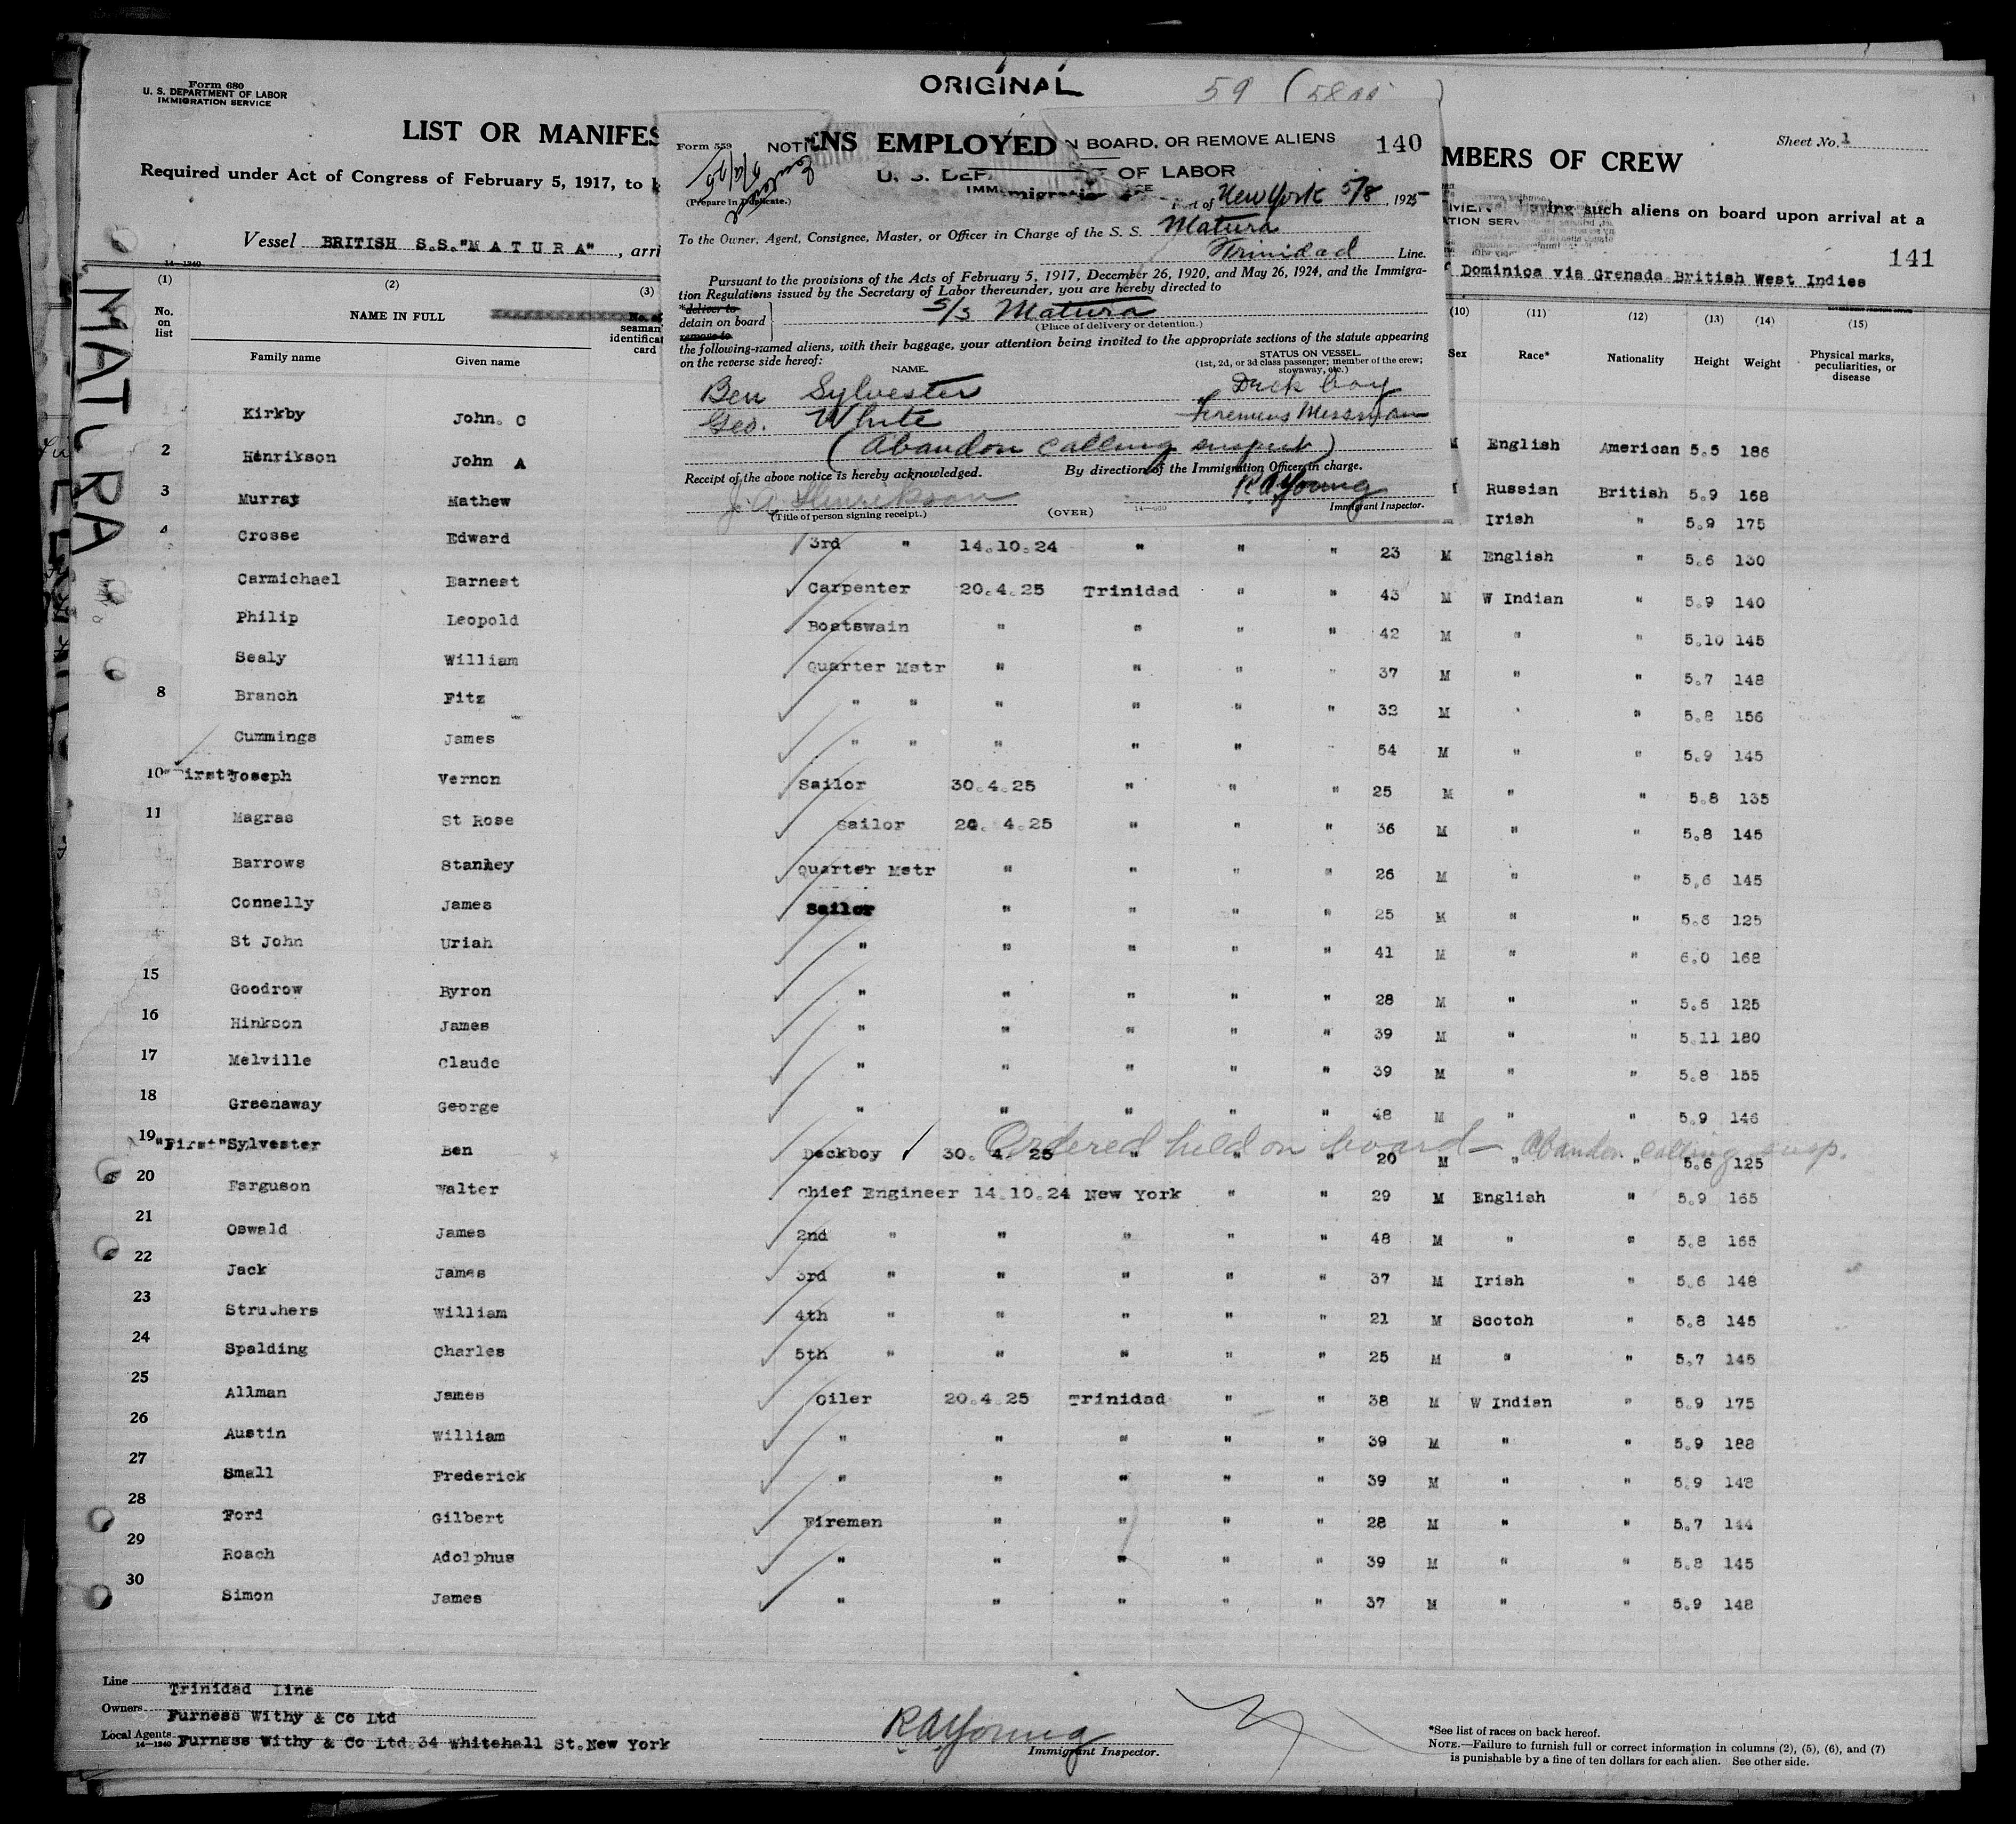 Form 680
U. S. DEPARTMENT OF LABOR
IMMIGRATION SERVICE
ORIGINAL
59
LIST OR MANIFES
ENS EMPLOYED
MBERS OF CREW
Sheet No. 1
Required under Act of Congress of February 5, 1917, to
such aliens on board upon arrival at a
Vessel BRITISH S.S."MATURA", arri
Dominica via Grenada British West Indies
141
MATURA
Form 559
NOTI
N BOARD, OR REMOVE ALIENS
140
U. S. DEP
OF LABOR
(Prepare in Duplicate.)
Port of New York 5/8, 1925
To the Owner, Agent, Consignee, Master, or Officer in Charge of the S. S. Matura
Trinidad Line.
Pursuant to the provisions of the Acts of February 5, 1917, December 26, 1920, and May 26, 1924, and the Immigra-
tion Regulations issued by the Secretary of Labor thereunder, you are hereby directed to
*deliver to
detain on board
remove to
S/S Matura
(Place of delivery or detention.)
the following-named aliens, with their baggage, your attention being invited to the appropriate sections of the statute appearing
on the reverse side hereof:
NAME.
STATUS ON VESSEL
(1st, 2d, or 3d class passenger; member of the crew;
stowaway, etc.)
Ben Sylvester Deck boy
Geo. White Firemens Messman
(Abandon calling suspect)
Receipt of the above notice is hereby acknowledged.
By direction of the Immigration Officer in charge.
J. A. Henrikson
R A Young
(Title of person signing receipt.)
(OVER)
Immigrant Inspector.
(1) (2) (3) (10) (11) (12) (13) (14) (15)
No. on list
NAME IN FULL
Family name Given name
seaman's
identificat
card
Sex Race* Nationality Height Weight Physical marks, peculiarities, or disease
Kirkby John. C M English American 5.5 186
2 Henrikson John A Russian British 5.9 168
3 Murray Mathew Irish " 5.9 175
4 Crosse Edward 3rd " 14.10.24 " " " 23 M English " 5.6 130
Carmichael Earnest Carpenter 20.4.25 Trinidad " " 43 M W Indian " 5.9 140
Philip Leopold Boatswain " " " " 42 M " " 5.10 145
Sealy William Quarter Mstr " " " " 37 M " " 5.7 148
8 Branch Fitz " " " " " " 32 M " " 5.8 156
Cummings James " " " " " " 54 M " " 5.9 145
10 "First" Joseph Vernon Sailor 30.4.25 " " " 25 M " " 5.8 135
11 Magras St Rose Sailor 20. 4.25 " " " 36 M " " 5.8 145
Barrows Stanley Quarter Mstr " " " " 26 M " " 5.6 145
Connelly James Sailor " " " " 25 M " " 5.6 125
St John Uriah " " " " " 41 M " " 6.0 168
15 Goodrow Byron " " " " " 28 M " " 5.6 125
16 Hinkson James " " " " " 39 M " " 5.11 180
17 Melville Claude " " " " " 39 M " " 5.8 155
18 Greenaway George " " " " " 48 M " " 5.9 146
Ordered held on board - Abandon calling susp.
19 "First" Sylvester Ben Deckboy 30. 4. 25 " " " 20 M " " 5.6 125
20 Farguson Walter Chief Engineer 14.10.24 New York " " 29 M English " 5.9 165
21 Oswald James 2nd " " " " " 48 M " " 5.8 165
22 Jack James 3rd " " " " " 37 M Irish " 5.6 148
23 Struthers William 4th " " " " " 21 M Scotch " 5.8 145
24 Spalding Charles 5th " " " " " 25 M " " 5.7 145
25 Allman James Oiler 20.4.25 Trinidad " " 38 M W Indian " 5.9 175
26 Austin William " " " " " 39 M " " 5.9 188
27 Small Frederick " " " " " 39 M " " 5.9 148
28 Ford Gilbert Fireman " " " " 28 M " " 5.7 144
29 Roach Adolphus " " " " " 39 M " " 5.8 145
30 Simon James " " " " " 37 M " " 5.9 148
Line Trinidad Line
Owners Furness Withy & Co Ltd
Local Agents Furness Withy & Co Ltd. 34 Whitehall St. New York
14—1240
R A Young
Immigrant Inspector.
*See list of races on back hereof.
NOTE.—Failure to furnish full or correct information in columns (2), (5), (6), and (7)
is punishable by a fine of ten dollars for each alien. See other side.